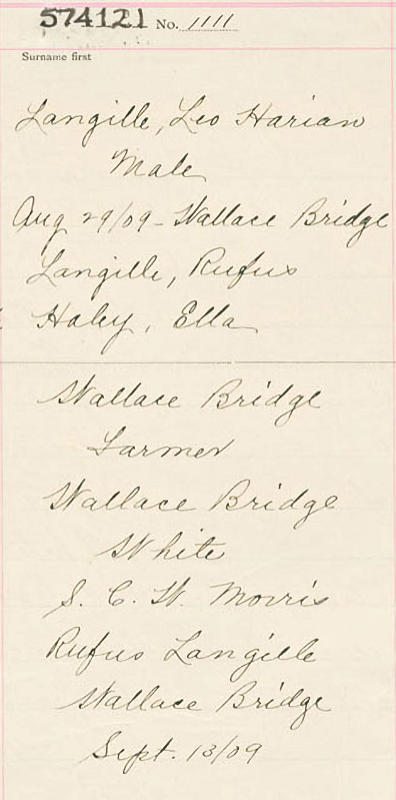 574121 No. 1111
Surname first
Langille, Leo Harian
Male
Aug 29/09 - Wallace Bridge
Langille, Rufus
Haley, Ella
Wallace Bridge
Farmer
Wallace Bridge
White
S. C. W. Morris
Rufus Langille
Wallace Bridge
Sept. 13/09